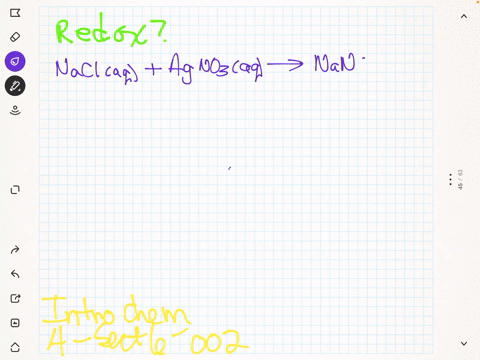 Redox?
NaCl(aq) + AgNO3(aq) → NaN
Intro Chem
A-sect 6-002
45 / 61